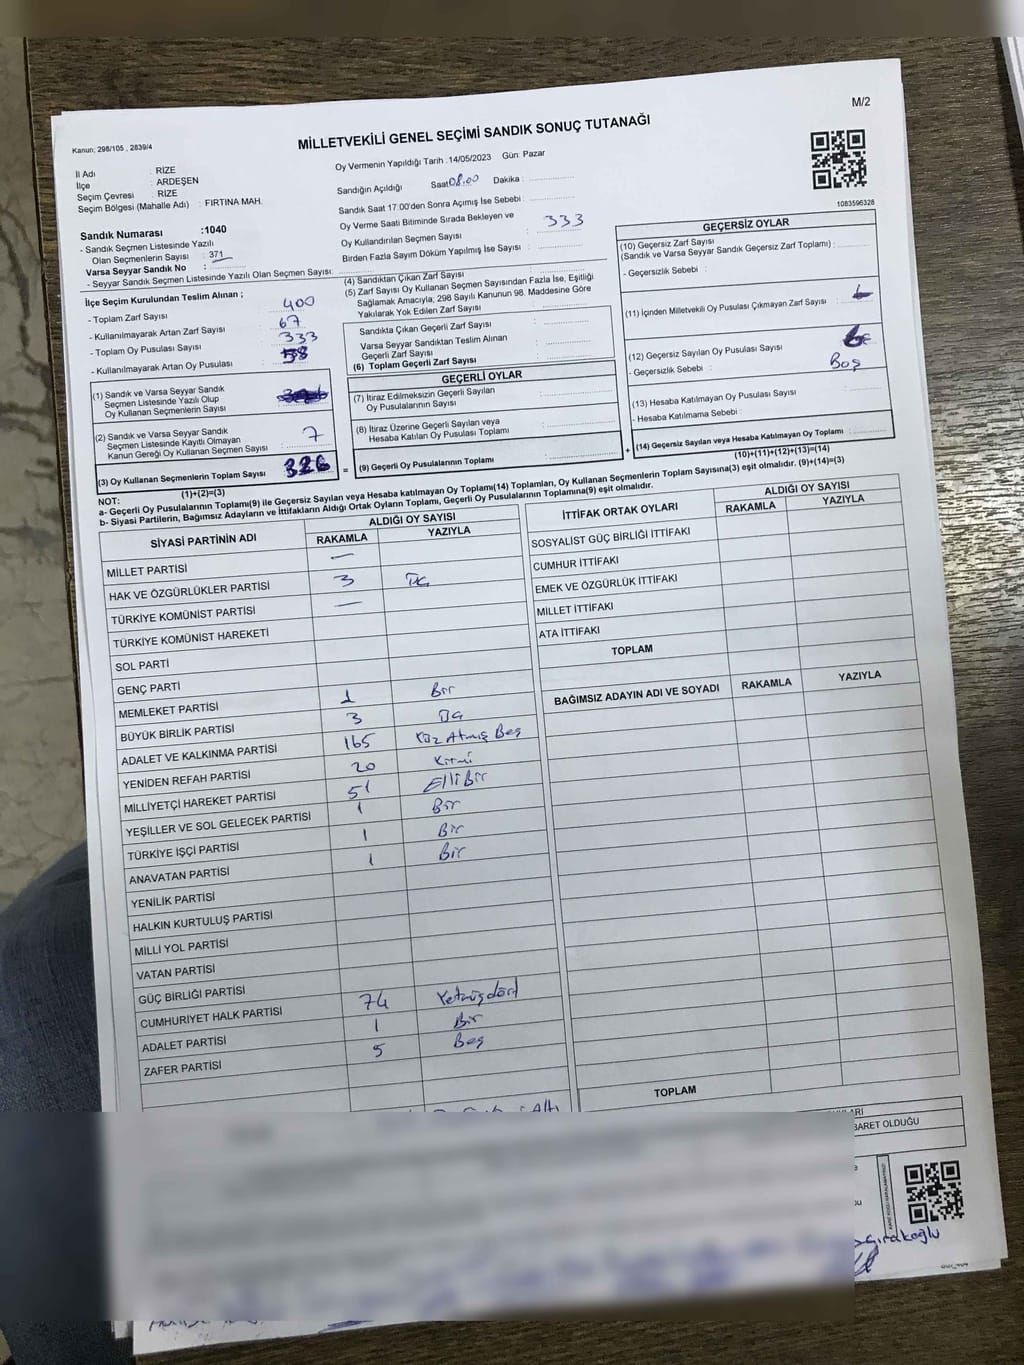 M/2
MİLLETVEKİLİ GENEL SEÇİMİ SANDIK SONUÇ TUTANAĞI
Kanun; 298/105 , 2839/4
İl Adı : RİZE
İlçe : ARDEŞEN
Seçim Çevresi : RİZE
Seçim Bölgesi (Mahalle Adı) : FIRTINA MAH.
Sandık Numarası :1040
- Sandık Seçmen Listesinde Yazılı
Olan Seçmenlerin Sayısı : 371
Varsa Seyyar Sandık No :
- Seyyar Sandık Seçmen Listesinde Yazılı Olan Seçmen Sayısı:
Oy Vermenin Yapıldığı Tarih :14/05/2023 Gün: Pazar
Sandığın Açıldığı Saat 08.00 Dakika :
Sandık Saat 17:00'den Sonra Açımış İse Sebebi :
Oy Verme Saati Bitiminde Sırada Bekleyen ve
Oy Kullandırılan Seçmen Sayısı : 333
Birden Fazla Sayım Döküm Yapılmış İse Sayısı :
1083596328
İlçe Seçim Kurulundan Teslim Alınan ;
- Toplam Zarf Sayısı : 400
- Kullanılmayarak Artan Zarf Sayısı : 67
- Toplam Oy Pusulası Sayısı : 333
- Kullanılmayarak Artan Oy Pusulası :
(1) Sandık ve Varsa Seyyar Sandık
Seçmen Listesinde Yazılı Olup
Oy Kullanan Seçmenlerin Sayısı :
(2) Sandık ve Varsa Seyyar Sandık
Seçmen Listesinde Kayıtlı Olmayan
Kanun Gereği Oy Kullanan Seçmen Sayısı : 7
(3) Oy Kullanan Seçmenlerin Toplam Sayısı : 326 =
(1)+(2)=(3)
(4) Sandıktan Çıkan Zarf Sayısı :
(5) Zarf Sayısı Oy Kullanan Seçmen Sayısından Fazla İse, Eşitliği
Sağlamak Amacıyla; 298 Sayılı Kanunun 98. Maddesine Göre
Yakılarak Yok Edilen Zarf Sayısı :
Sandıkta Çıkan Geçerli Zarf Sayısı :
Varsa Seyyar Sandıktan Teslim Alınan
Geçerli Zarf Sayısı :
(6) Toplam Geçerli Zarf Sayısı :
GEÇERLİ OYLAR
(7) İtiraz Edilmeksizin Geçerli Sayılan
Oy Pusulalarının Sayısı :
(8) İtiraz Üzerine Geçerli Sayılan veya
Hesaba Katılan Oy Pusulası Toplamı :
(9) Geçerli Oy Pusulalarının Toplamı : +
GEÇERSİZ OYLAR
(10) Geçersiz Zarf Sayısı
(Sandık ve Varsa Seyyar Sandık Geçersiz Zarf Toplamı) :
- Geçersizlik Sebebi :
(11) İçinden Milletvekili Oy Pusulası Çıkmayan Zarf Sayısı :
(12) Geçersiz Sayılan Oy Pusulası Sayısı :
- Geçersizlik Sebebi : Boş
(13) Hesaba Katılmayan Oy Pusulası Sayısı :
- Hesaba Katılmama Sebebi :
(14) Geçersiz Sayılan veya Hesaba Katılmayan Oy Toplamı :
(10)+(11)+(12)+(13)=(14)
NOT:
a- Geçerli Oy Pusulalarının Toplamı(9) ile Geçersiz Sayılan veya Hesaba katılmayan Oy Toplamı(14) Toplamları, Oy Kullanan Seçmenlerin Toplam Sayısına(3) eşit olmalıdır. (9)+(14)=(3)
b- Siyasi Partilerin, Bağımsız Adayların ve İttifakların Aldığı Ortak Oyların Toplamı, Geçerli Oy Pusulalarının Toplamına(9) eşit olmalıdır.
SİYASİ PARTİNİN ADI ALDIĞI OY SAYISI
RAKAMLA YAZIYLA
MİLLET PARTİSİ —
HAK VE ÖZGÜRLÜKLER PARTİSİ 3 Üç
TÜRKİYE KOMÜNİST PARTİSİ —
TÜRKİYE KOMÜNİST HAREKETİ
SOL PARTİ
GENÇ PARTİ
MEMLEKET PARTİSİ 1 Bir
BÜYÜK BİRLİK PARTİSİ 3 Üç
ADALET VE KALKINMA PARTİSİ 165 Yüz Atmış Beş
YENİDEN REFAH PARTİSİ 20 Yirmi
MİLLİYETÇİ HAREKET PARTİSİ 51 Elli Bir
YEŞİLLER VE SOL GELECEK PARTİSİ 1 Bir
TÜRKİYE İŞÇİ PARTİSİ 1 Bir
ANAVATAN PARTİSİ 1 Bir
YENİLİK PARTİSİ
HALKIN KURTULUŞ PARTİSİ
MİLLİ YOL PARTİSİ
VATAN PARTİSİ
GÜÇ BİRLİĞİ PARTİSİ
CUMHURİYET HALK PARTİSİ 74 Yetmişdört
ADALET PARTİSİ 1 Bir
ZAFER PARTİSİ 5 Beş
Altı
İTTİFAK ORTAK OYLARI ALDIĞI OY SAYISI
RAKAMLA YAZIYLA
SOSYALİST GÜÇ BİRLİĞİ İTTİFAKI
CUMHUR İTTİFAKI
EMEK VE ÖZGÜRLÜK İTTİFAKI
MİLLET İTTİFAKI
ATA İTTİFAKI
TOPLAM
BAĞIMSIZ ADAYIN ADI VE SOYADI RAKAMLA YAZIYLA
TOPLAM
BARET OLDUĞU